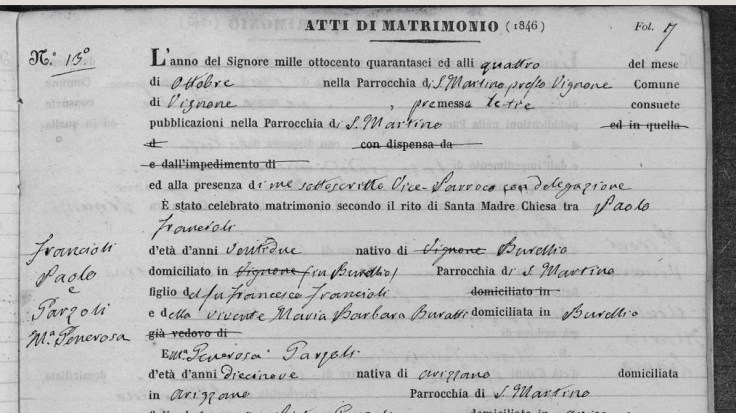 ATTI DI MATRIMONIO (1846) Fol. 7
N.° 13.° L'anno del Signore mille ottocento quarantasei ed alli quattro del mese
di Ottobre nella Parrocchia di S. Martino presso Vignone Comune
di Vignone , premesse le tre consuete
pubblicazioni nella Parrocchia di S. Martino ed in quella
d con dispensa da
e dall'impedimento di
ed alla presenza di me sottoscritto Vice-Parroco con delegazione
È stato celebrato matrimonio secondo il rito di Santa Madre Chiesa tra Paolo
Francioli
Francioli
Paolo
e
M.a Generosa
d'età d'anni ventidue nativo di Vignone Bureglio
domiciliato in Vignone (in Bureglio) Parrocchia di S. Martino
figlio del fu Francesco Francioli domiciliato in
e della vivente Maria Barbara Buratti domiciliata in Bureglio
già vedovo di
E M.a Generosa
d'età d'anni diecinove nativa di Arizzano domiciliata
in Arizzano Parrocchia di S. Martino